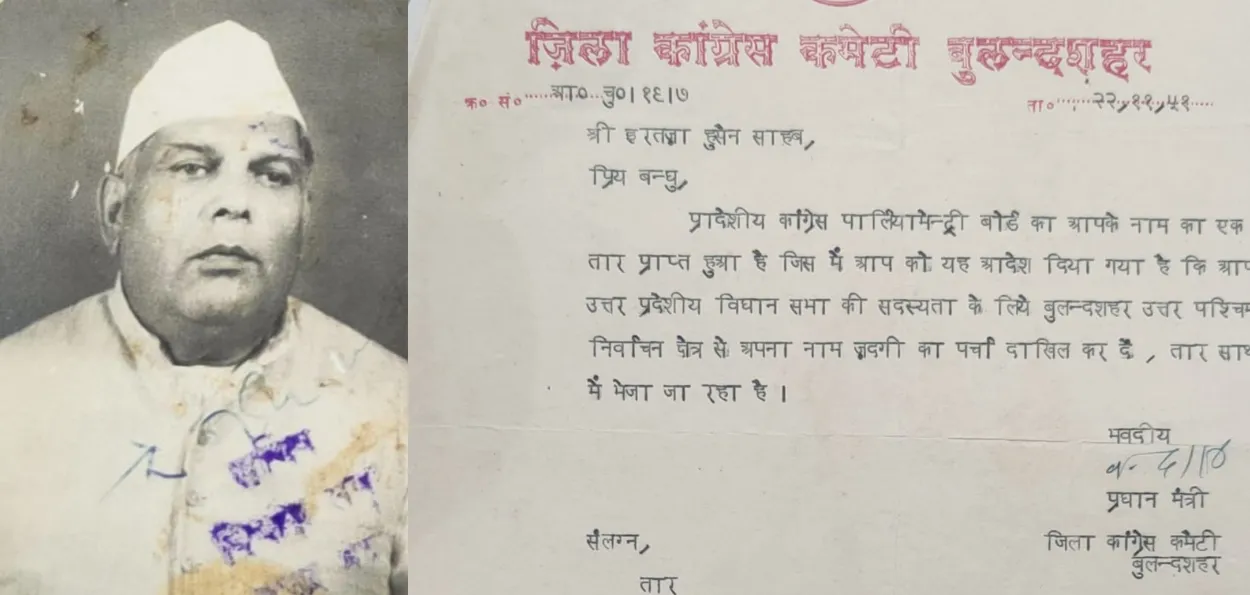 ज़िला कांग्रेस कमेटी बुलन्दशहर
क्र० सं० आ० चु०।१६।७
ता० २२,११,५१
श्री इरतज़ा हुसैन साहब,
प्रिय बन्घु,
प्रादेशीय कांग्रेस पार्लियामेन्ट्री बोर्ड का आपके नाम का एक
तार प्राप्त हुआ है जिस में आप को यह आदेश दिया गया है कि आप
उत्तर प्रदेशीय विधान सभा की सदस्यता के लिये बुलन्दशहर उत्तर पश्चिम
निर्वाचन क्षेत्र से अपना नाम ज़दगी का पर्चा दाखिल कर दें , तार साथ
में भेजा जा रहा है ।
भवदीय
प्रधान मंत्री
जिला कांग्रेस कमेटी
बुलन्दशहर
संलग्न,
तार